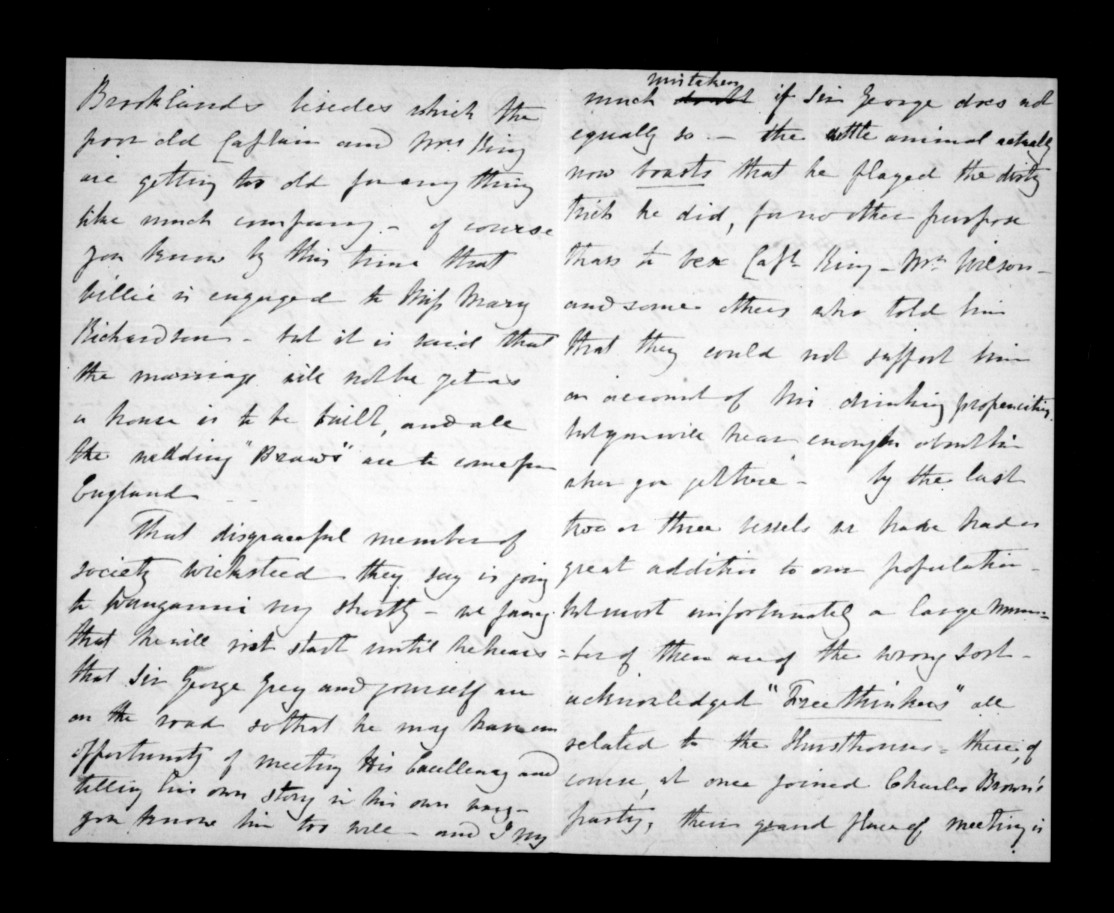 Brooklands besides which the
poor old Captain and Mrs King
are getting too old for any thing
like much company. - of course
you know by this time that
billie is engaged to Miss Mary
Richardson - but it is said that
the marriage will not be yet as
a house is to be built, and all
the wedding "Braws" are to come from
England - -
That disgraceful member of
society Wicksteed they say is going
to Wanganui very shortly - we fancy
that he will not start until he hears
that Sir George Grey and yourself are
on the road so that he may have an
opportunity of meeting His Excellency and
telling his own story in his own way -
you know him too well - and I'm
much mistaken doubt if Sir George does not
equally so. - the little animal actually
now boasts that he played the dirty
trick he did, for no other purpose
than to vex Capt King - Mr Wilson -
and some others who told him
that they could not support him
on account of his drinking propensities.
but you will hear enough about him
when you get here - by the last
two or three vessels we have had a
great addition to our population -
but most unfortunately a large num-
-ber of them are of the wrong sort -
acknowledged "Freethinkers" all
related to the Hursthouses - these, of
course, at once joined Charles Brown's
party, their grand place of meeting is